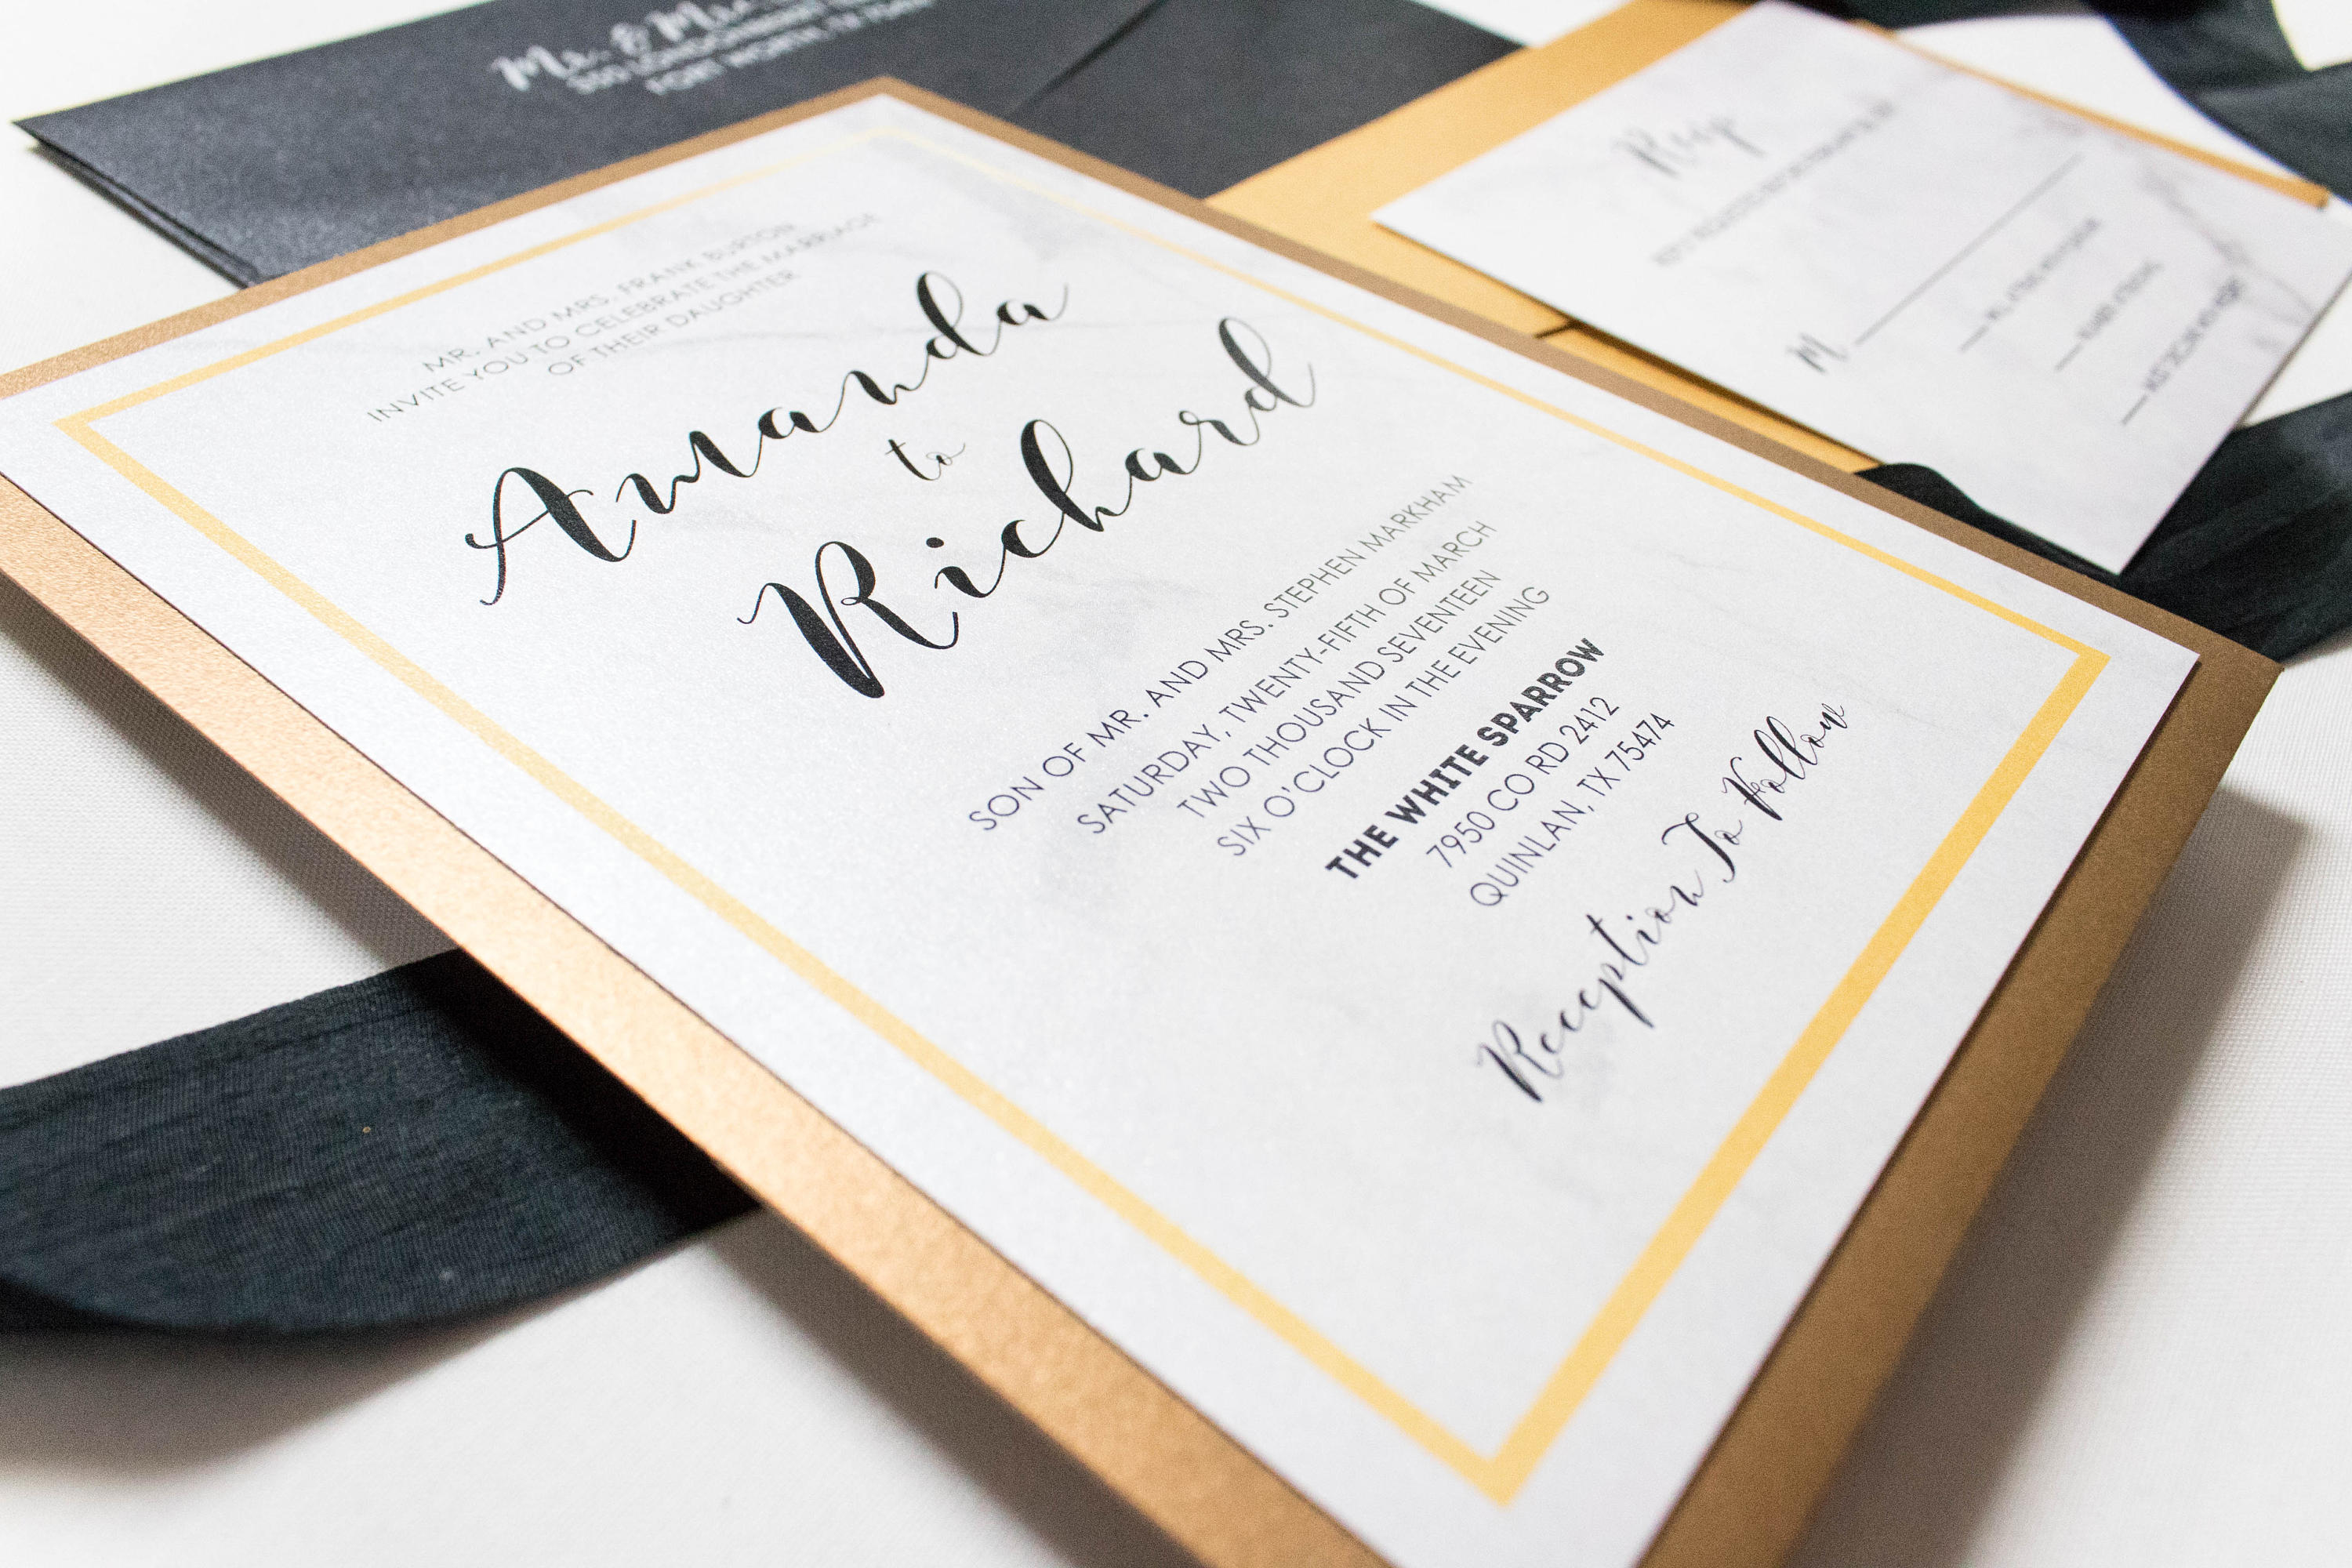 Mr. & Mrs.
FORT WORTH, TX
MR. AND MRS. FRANK BURTON
INVITE YOU TO CELEBRATE THE MARRIAGE
OF THEIR DAUGHTER
Amanda
to
Richard
SON OF MR. AND MRS. STEPHEN MARKHAM
SATURDAY, TWENTY-FIFTH OF MARCH
TWO THOUSAND SEVENTEEN
SIX O'CLOCK IN THE EVENING
THE WHITE SPARROW
7950 CO RD 2412
QUINLAN, TX 75474
Reception To Follow
Rsvp
M